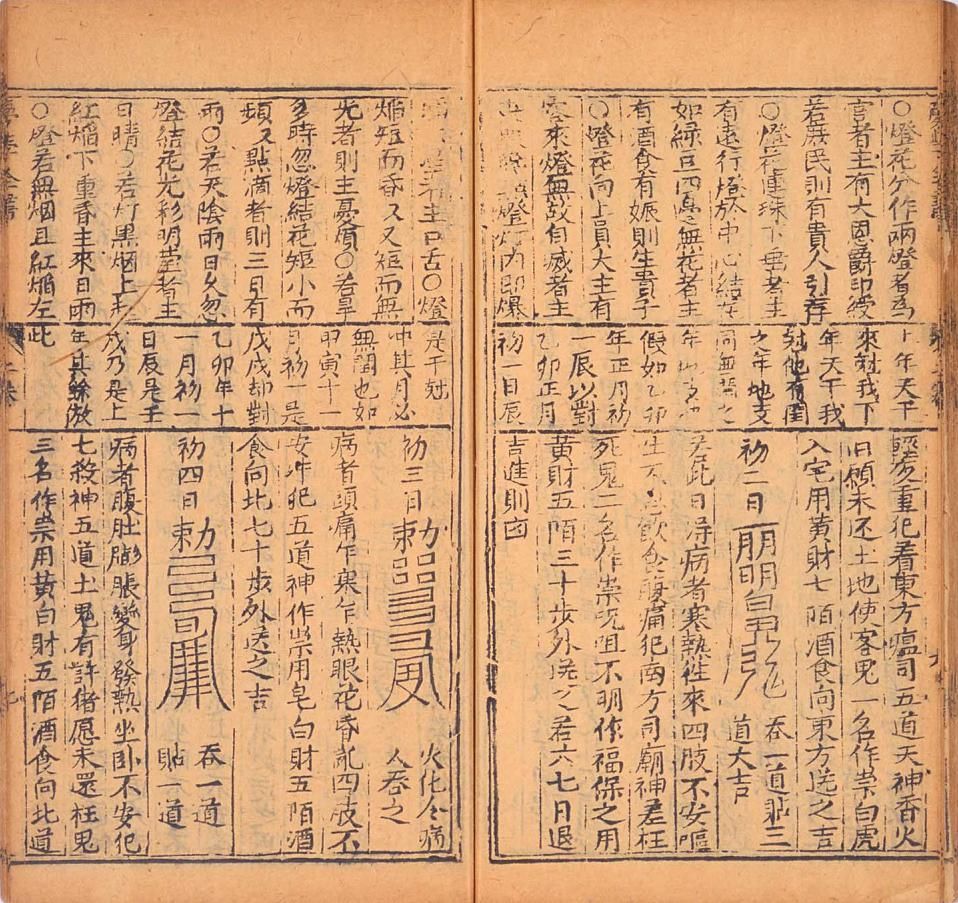 ○燈花分作兩燈者為
言者主有大恩爵印綬
若庶民則有貴人引荐
○燈花連珠下垂者主
有遠行燈於中心結花
如綠豆四邊無花者主
有酒食有娠則生貴子
○燈花向上員大主有
客來燈無故自滅者主
燈灯内即爆
上年天干
來尅我下
年天干我
尅他有閏
之年地支
同無閏之
年
假如乙卯
年正月初
一辰以對
乙卯正月
初一日辰
輕災重犯着東方瘟司五道天神香火
旧願未还土地使客鬼一名作祟白虎
入宅用黃財七陌酒食向東方送之吉
初二日 吞一道貼三
道大吉
若此日得病者寒熱往來四肢不安嘔
生不思飲食腹痛犯南方司廟神差枉
死鬼二名作祟咒咀不明作福保之用
黃財五陌三十步外送之若六七月退
吉進則凶
主口舌○燈
焰短而昏又又短而無
光者則主憂煩○若旱
多時忽燈結花短小而
頻又點滴者則三日有
雨○若天陰雨日久忽
燈結花光彩明莹者主
日晴○若灯黑烟上耒
紅焰下重昏主來日雨
○燈若無烟且紅焰左此
是干尅
冲其月必
無閏也如
甲寅十一
月初一是
戊戌却對
乙卯年十
一月初一
日辰是壬
戌乃是上
年其餘放
初三日勅 火化令病
人吞之
病者頭痛乍寒乍熱眼花昏乱四肢不
安冲犯五道神作祟用皂白財五陌酒
食向北七十步外送之吉
初四日勅 吞一道
貼一道
病者腹肚膨脹變身發熱坐卧不安犯
七殺神五道土鬼有許猪愿未還枉鬼
三名作祟用黃白財五陌酒食向北道